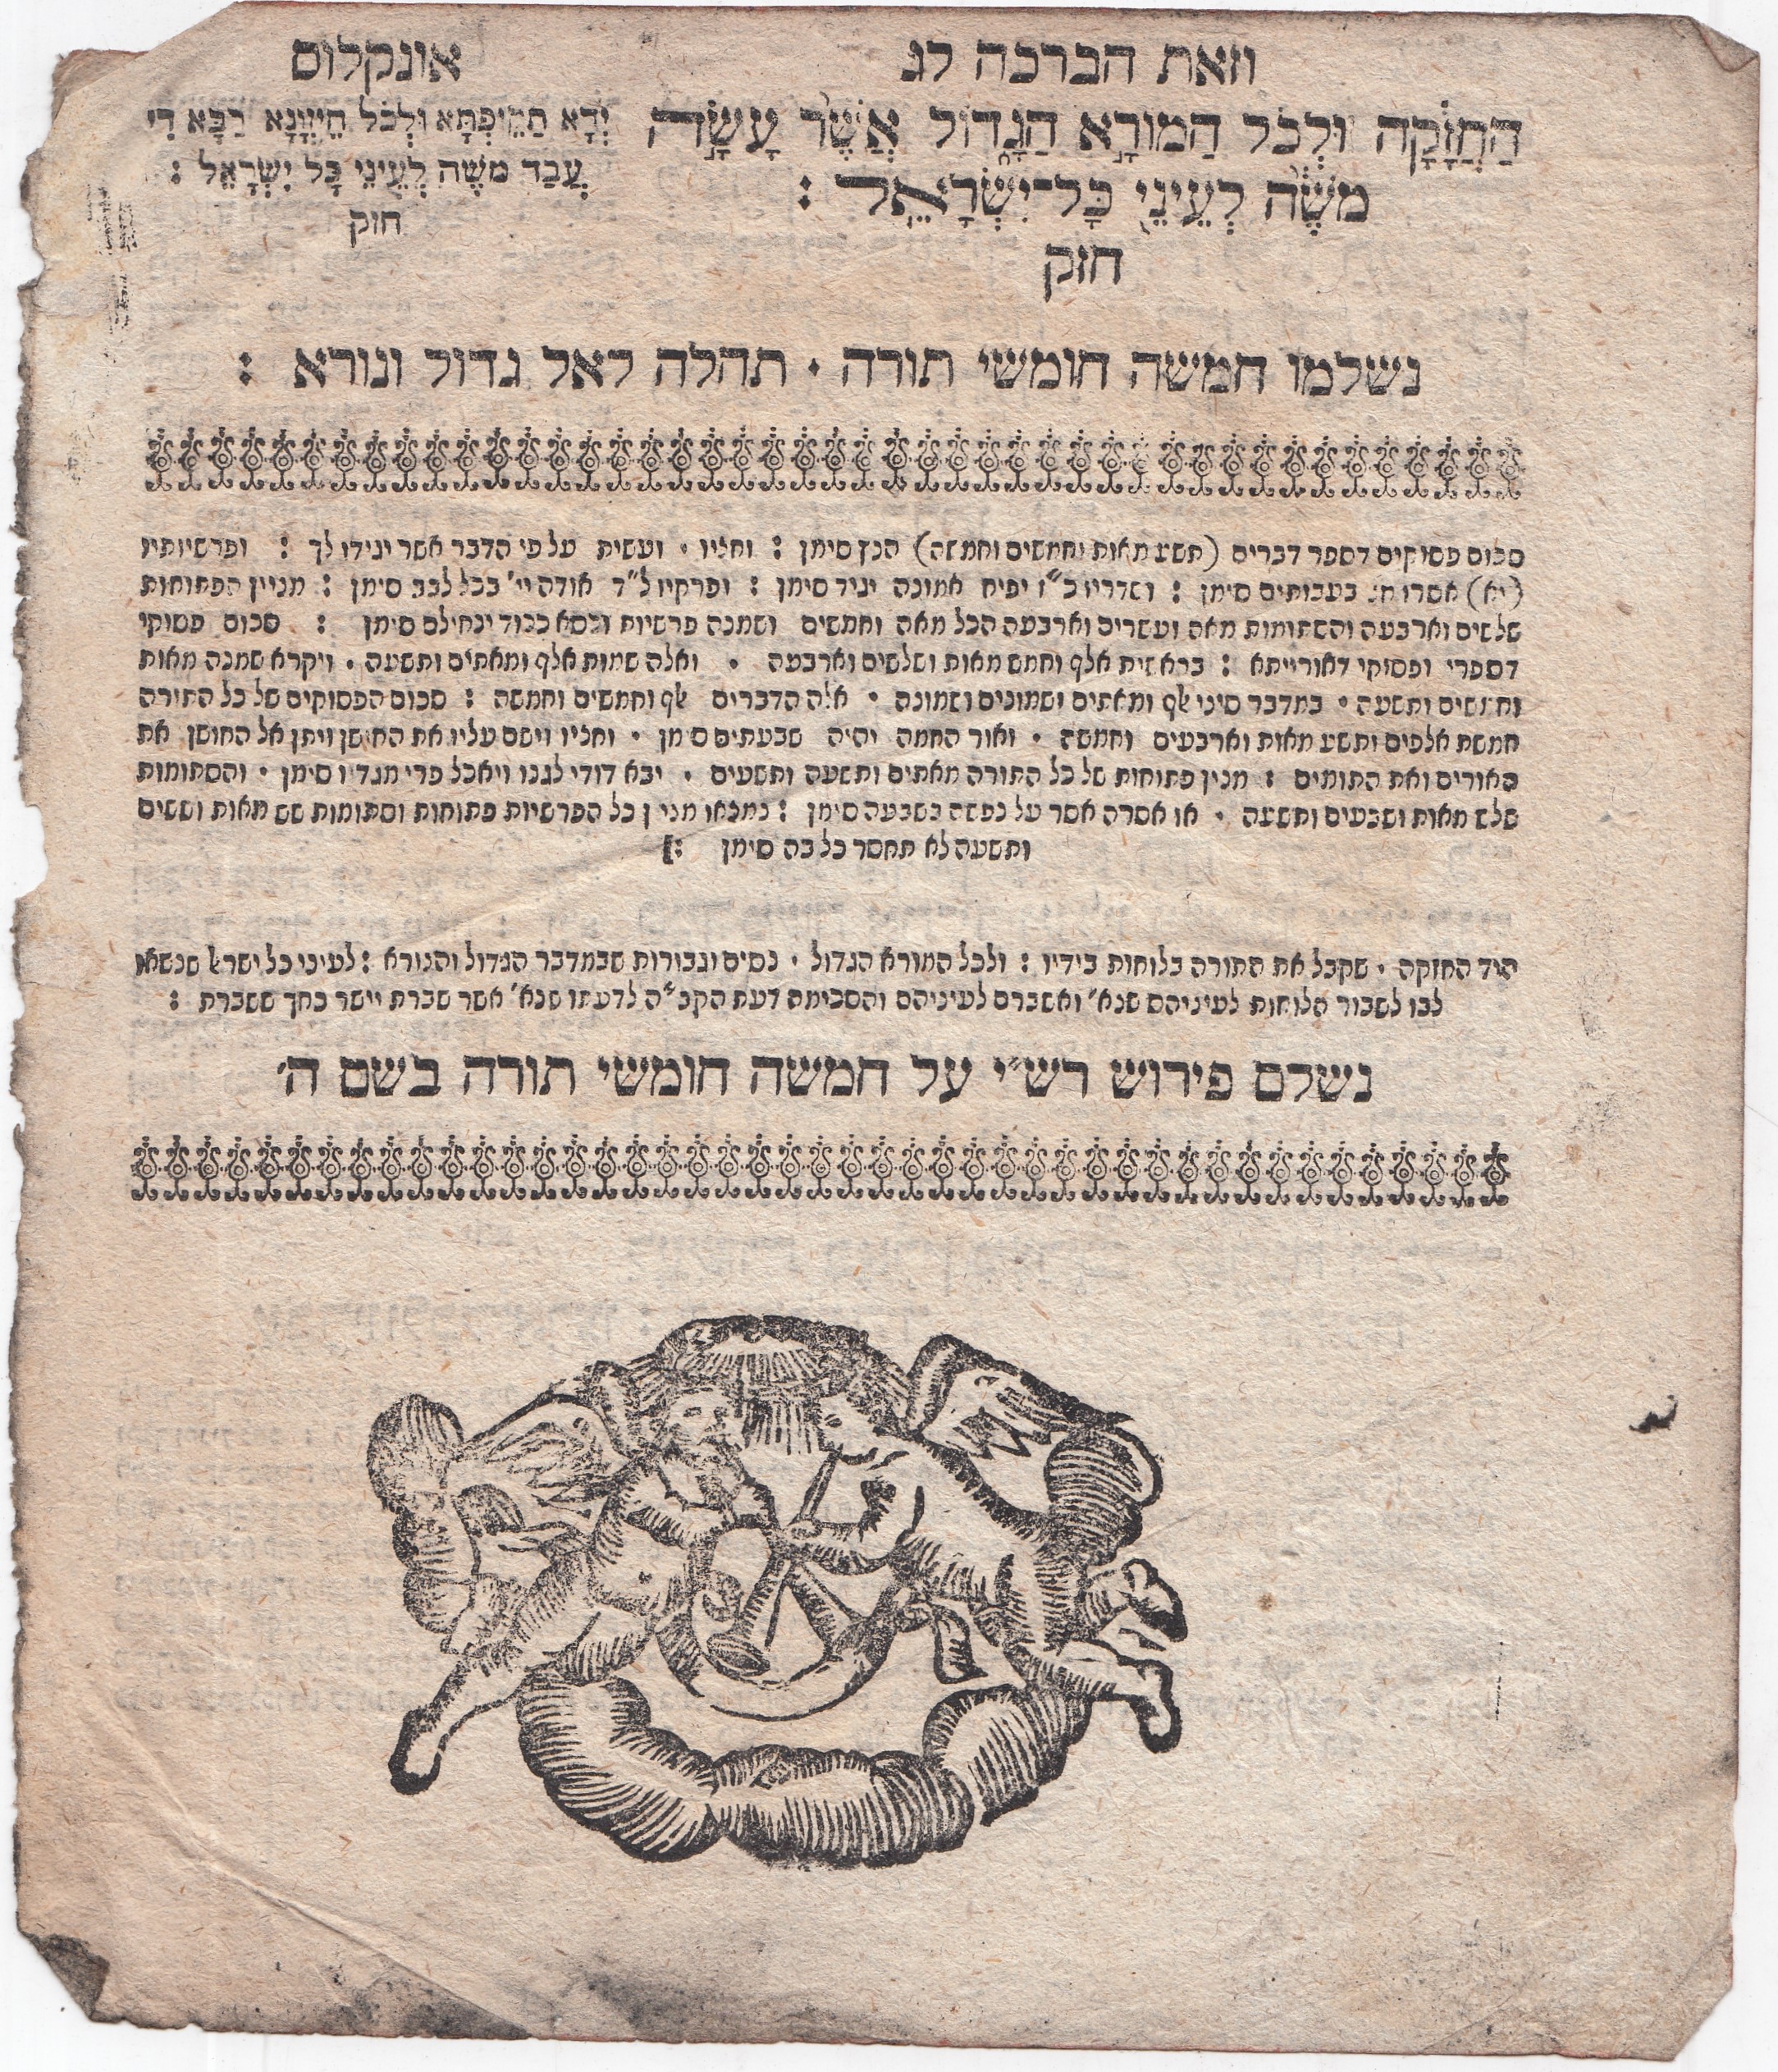 וזאת הברכה לג
אונקלוס
הַחֲזָקָה וּלְכֹל הַמּוֹרָא הַגָּדוֹל אֲשֶׁר עָשָׂה
מֹשֶׁה לְעֵינֵי כָּל־יִשְׂרָאֵל :
חזק
יְדָא תַקִּיפְתָּא וּלְכֹל חֶיזְוָנָא רַבָּא דִי
עֲבַד מֹשֶׁה לְעֵינֵי כָּל יִשְׂרָאֵל :
חזק
נשלמו חמשה חומשי תורה · תהלה לאל גדול ונורא :
סכום פסוקים דספר דברים (תשע מאות וחמשים וחמשה) הנץ סימן : וחציו · ועשית על פי הדבר אשר יגידו לך : ופרשיותיו
(יא) אסרו חג בעבותים סימן : וסדריו כ"ז יפיח אמונה יגיד סימן : ופרקיו ל"ד אודה יי' בכל לבב סימן : מניין הפתוחות
שלשים וארבעה והסתומות מאה ועשרים וארבעה הכל מאה וחמשים ושמנה פרשיות וכסא כבוד ינחילם סימן : סכום פסוקי
דספרי ופסוקי דאורייתא : בראשית אלף וחמש מאות ושלשים וארבעה · ואלה שמות אלף ומאתים ותשעה · ויקרא שמנה מאות
וחמשים ותשעה · במדבר סיני אלף ומאתים ושמונים ושמונה · אלה הדברים אלף וחמשים וחמשה : סכום הפסוקים של כל התורה
חמשת אלפים ותשע מאות וארבעים וחמשה · ואור החמה יהיה שבעתים סימן · וחציו וישם עליו את החושן ויתן אל החושן את
האורים ואת התומים : מנין פתוחות של כל התורה מאתים ותשעה ותשעים · יבא דודי לגנו ויאכל פרי מגדיו סימן · והסתומות
שלש מאות ושבעים ותשעה · או אסרה אסר על נפשה בשבעה סימן : נמצאו מנין כל הפרשיות פתוחות וסתומות שש מאות וששים
ותשעה לא תחסר כל בה סימן :]
היד החזקה · שקבל את התורה בלוחות בידיו : ולכל המורא הגדול · נסים וגבורות שבמדבר הגדול והנורא : לעיני כל ישראל שנשאו
לבו לשבור הלוחות לעיניהם שנא' ואשברם לעיניהם והסכימה דעת הקב"ה לדעתו שנא' אשר שברת יישר כחך ששברת :
נשלם פירוש רש"י על חמשה חומשי תורה בשם ה'